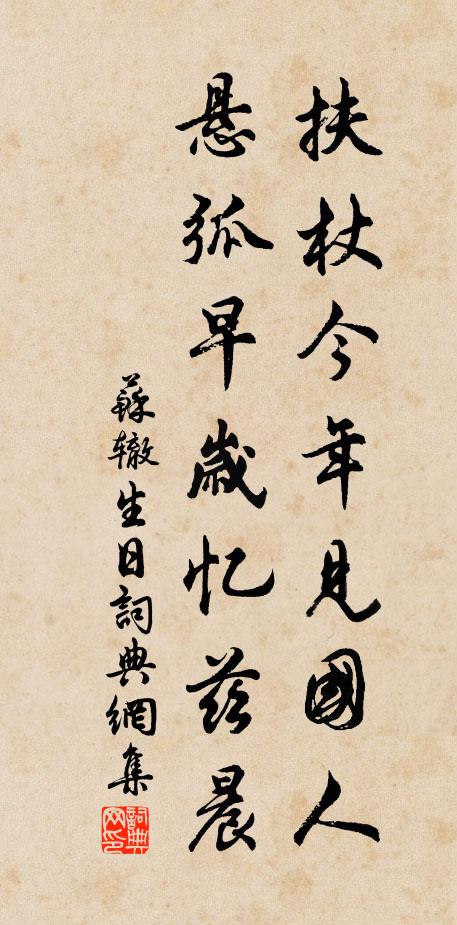 扶杖今年見國人
悬弧早歲忆兹晨
蘇辙生日詞典網集
詞典网印